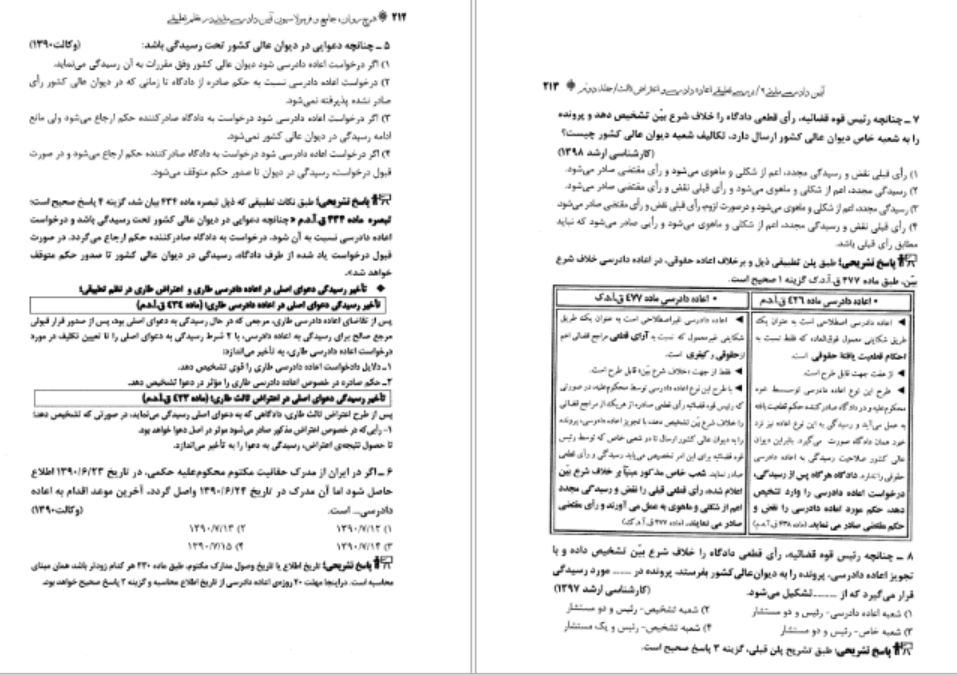 شرح روان، جامع و فرمولاسیون آیین دادرسی مدنی در نظم تطبیقی ۲۱۲
۵ ـ چنانچه دعوایی در دیوان عالی کشور تحت رسیدگی باشد: (وکالت ۱۳۹۰)
۱) اگر درخواست اعاده دادرسی شود دیوان عالی کشور وفق مقررات به آن رسیدگی می‌نماید.
۲) درخواست اعاده دادرسی نسبت به حکم صادره از دادگاه تا زمانی که در دیوان عالی کشور رأی
صادر نشده پذیرفته نمی‌شود.
۳) اگر درخواست اعاده دادرسی شود درخواست به دادگاه صادرکننده حکم ارجاع می‌شود ولی مانع
ادامه رسیدگی در دیوان عالی کشور نمی‌شود.
۴) اگر درخواست اعاده دادرسی شود درخواست به دادگاه صادرکننده حکم ارجاع می‌شود و در صورت
قبول درخواست، رسیدگی در دیوان تا صدور حکم متوقف می‌شود.
پاسخ تشریحی: طبق نکات تطبیقی که ذیل تبصره ماده ۴۳۴ بیان شد، گزینه ۴ پاسخ صحیح است:
تبصره ماده ۴۳۴ ق.آ.د.م «چنانچه دعوایی در دیوان عالی کشور تحت رسیدگی باشد و درخواست
اعاده دادرسی نسبت به آن شود، درخواست به دادگاه صادرکننده حکم ارجاع می‌گردد. در صورت
قبول درخواست یاد شده از طرف دادگاه، رسیدگی در دیوان عالی کشور تا صدور حکم متوقف
خواهد شد».
◆ تأخیر رسیدگی دعوای اصلی در اعاده دادرسی طاری و اعتراض طاری در نظم تطبیقی:
تأخیر رسیدگی دعوای اصلی در اعاده دادرسی طاری: (ماده ۴۳۴ ق.آ.د.م)
پس از تقاضای اعاده دادرسی طاری، مرجعی که در حال رسیدگی به دعوای اصلی بود، پس از صدور قرار قبولی
مرجع صالح برای رسیدگی به اعاده دادرسی، با ۲ شرط رسیدگی به دعوای اصلی را تا تعیین تکلیف در مورد
درخواست اعاده دادرسی طاری، به تأخیر می‌اندازد:
۱ـ دلایل دادخواست اعاده دادرسی طاری را قوی تشخیص دهد.
۲ـ حکم صادره در خصوص اعاده دادرسی طاری را مؤثر در دعوا تشخیص دهد.
تأخیر رسیدگی دعوای اصلی در اعتراض ثالث طاری: (ماده ۴۲۳ ق.آ.د.م)
پس از طرح اعتراض ثالث طاری، دادگاهی که به دعوای اصلی رسیدگی می‌نماید، در صورتی که تشخیص دهد:
۱- رأیی‌که در خصوص اعتراض مذکور صادر می‌شود موثر در اصل دعوا خواهد بود.
تا حصول نتیجه‌ی اعتراض، رسیدگی به دعوا را به تأخیر می‌اندازد.
۶ ـ اگر در ایران از مدرک حقانیت مکتوم محکوم‌علیه حکمی، در تاریخ ۱۳۹۰/۶/۲۳ اطلاع
حاصل شود اما آن مدرک در تاریخ ۱۳۹۰/۶/۲۴ واصل گردد، آخرین موعد اقدام به اعاده
دادرسی... است. (وکالت ۱۳۹۰)
۱) ۱۳۹۰/۷/۱۲ ۲) ۱۳۹۰/۷/۱۳
۳) ۱۳۹۰/۷/۱۴ ۴) ۱۳۹۰/۷/۱۵
پاسخ تشریحی: تاریخ اطلاع یا تاریخ وصول مدارک مکتوم، طبق ماده ۴۳۰ هر کدام زودتر باشد همان مبنای
محاسبه است. دراینجا مهلت ۲۰ روزه‌ی اعاده دادرسی از تاریخ اطلاع محاسبه و گزینه ۲ پاسخ صحیح خواهد بود.
آیین دادرسی مدنی ۲/ بررسی تطبیقی اعاده دادرسی و اعتراض ثالث/ جلد دوم ۲۱۳
۷ ـ چنانچه رئیس قوه قضائیه، رأی قطعی دادگاه را خلاف شرع بیّن تشخیص دهد و پرونده
را به شعبه خاص دیوان عالی کشور ارسال دارد، تکالیف شعبه دیوان عالی کشور چیست؟
(کارشناسی ارشد ۱۳۹۸)
۱) رأی قبلی نقض و رسیدگی مجدد، اعم از شکلی و ماهوی می‌شود و رأی مقتضی صادر می‌شود.
۲) رسیدگی مجدد، اعم از شکلی و ماهوی می‌شود و رأی قبلی نقض و رأی مقتضی صادر می‌شود.
۳) رسیدگی مجدد، اعم از شکلی و ماهوی می‌شود و درصورت لزوم، رأی قبلی نقض و رأی مقتضی صادر می‌شود.
۴) رأی قبلی نقض و رسیدگی مجدد، اعم از شکلی و ماهوی می‌شود و رأیی صادر می‌شود که نباید
مطابق رأی قبلی باشد.
پاسخ تشریحی: طبق پلن تطبیقی ذیل و برخلاف اعاده حقوقی، در اعاده دادرسی خلاف شرع
بیّن، طبق ماده ۴۷۷ ق.آ.د.ک گزینه ۱ صحیح است.
• اعاده دادرسی ماده ۴۲۶ ق.آ.د.م
◄ اعاده دادرسی اصطلاحی است به عنوان یک
طریق شکایتی معمول فوق‌العاده که فقط نسبت به
احکام قطعیت یافتهٔ حقوقی است.
◄ از هفت جهت قابل طرح است.
◄ طرح این نوع اعاده دادرسی توسط خود
محکوم‌علیه و در دادگاه صادرکننده حکم قطعیت یافته
به عمل می‌آید و رسیدگی به این نوع اعاده نیز نزد
خود همان دادگاه صورت می‌گیرد. بنابراین دیوان
عالی کشور صلاحیت رسیدگی به اعاده دادرسی
حقوقی را ندارد. دادگاه هرگاه پس از رسیدگی،
درخواست اعاده دادرسی را وارد تشخیص
دهد، حکم مورد اعاده دادرسی را نقض و
حکم مقتضی صادر می نماید. (ماده ۴۳۸ ق.آ.د.م)
• اعاده دادرسی ماده ۴۷۷ ق.آ.د.ک
◄ اعاده دادرسی غیراصطلاحی است به عنوان یک طریق
شکایتی غیرمعمول که نسبت به آرای قطعی مراجع قضائی اعم
از حقوقی و کیفری است.
◄ فقط از جهت «خلاف شرع بیّن» قابل طرح است.
◄ با طرح این نوع اعاده دادرسی توسط محکوم‌علیه، در صورتی
که رئیس قوه قضائیه رأی قطعی صادره از هریک از مراجع قضائی
را خلاف شرع بیّن تشخیص دهد، با تجویز اعاده دادرسی، پرونده
را به دیوان عالی کشور ارسال تا در شعبی خاص که توسط رئیس
قوه قضائیه برای این امر تخصیص می‌یابد رسیدگی و رأی قطعی
صادر نماید. شعب خاص مذکور مبنیاً بر خلاف شرع بیّن
اعلام شده، رأی قطعی قبلی را نقض و رسیدگی مجدد
اعم از شکلی و ماهوی به عمل می آورند و رأی مقتضی
صادر می نمایند. (ماده ۴۷۷ ق.آ.د.ک)
۸ ـ چنانچه رئیس قوه قضائیه، رأی قطعی دادگاه را خلاف شرع بیّن تشخیص داده و با
تجویز اعاده دادرسی، پرونده را به دیوان‌عالی‌کشور بفرستد، پرونده در ...... مورد رسیدگی
قرار می‌گیرد که از ...... تشکیل می‌شود. (کارشناسی ارشد ۱۳۹۷)
۱) شعبه اعاده دادرسی- رئیس و دو مستشار ۲) شعبه تشخیص- رئیس و دو مستشار
۳) شعبه خاص- رئیس و دو مستشار ۴) شعبه تشخیص- رئیس و یک مستشار
پاسخ تشریحی: طبق تشریح پلن قبلی، گزینه ۳ پاسخ صحیح است.